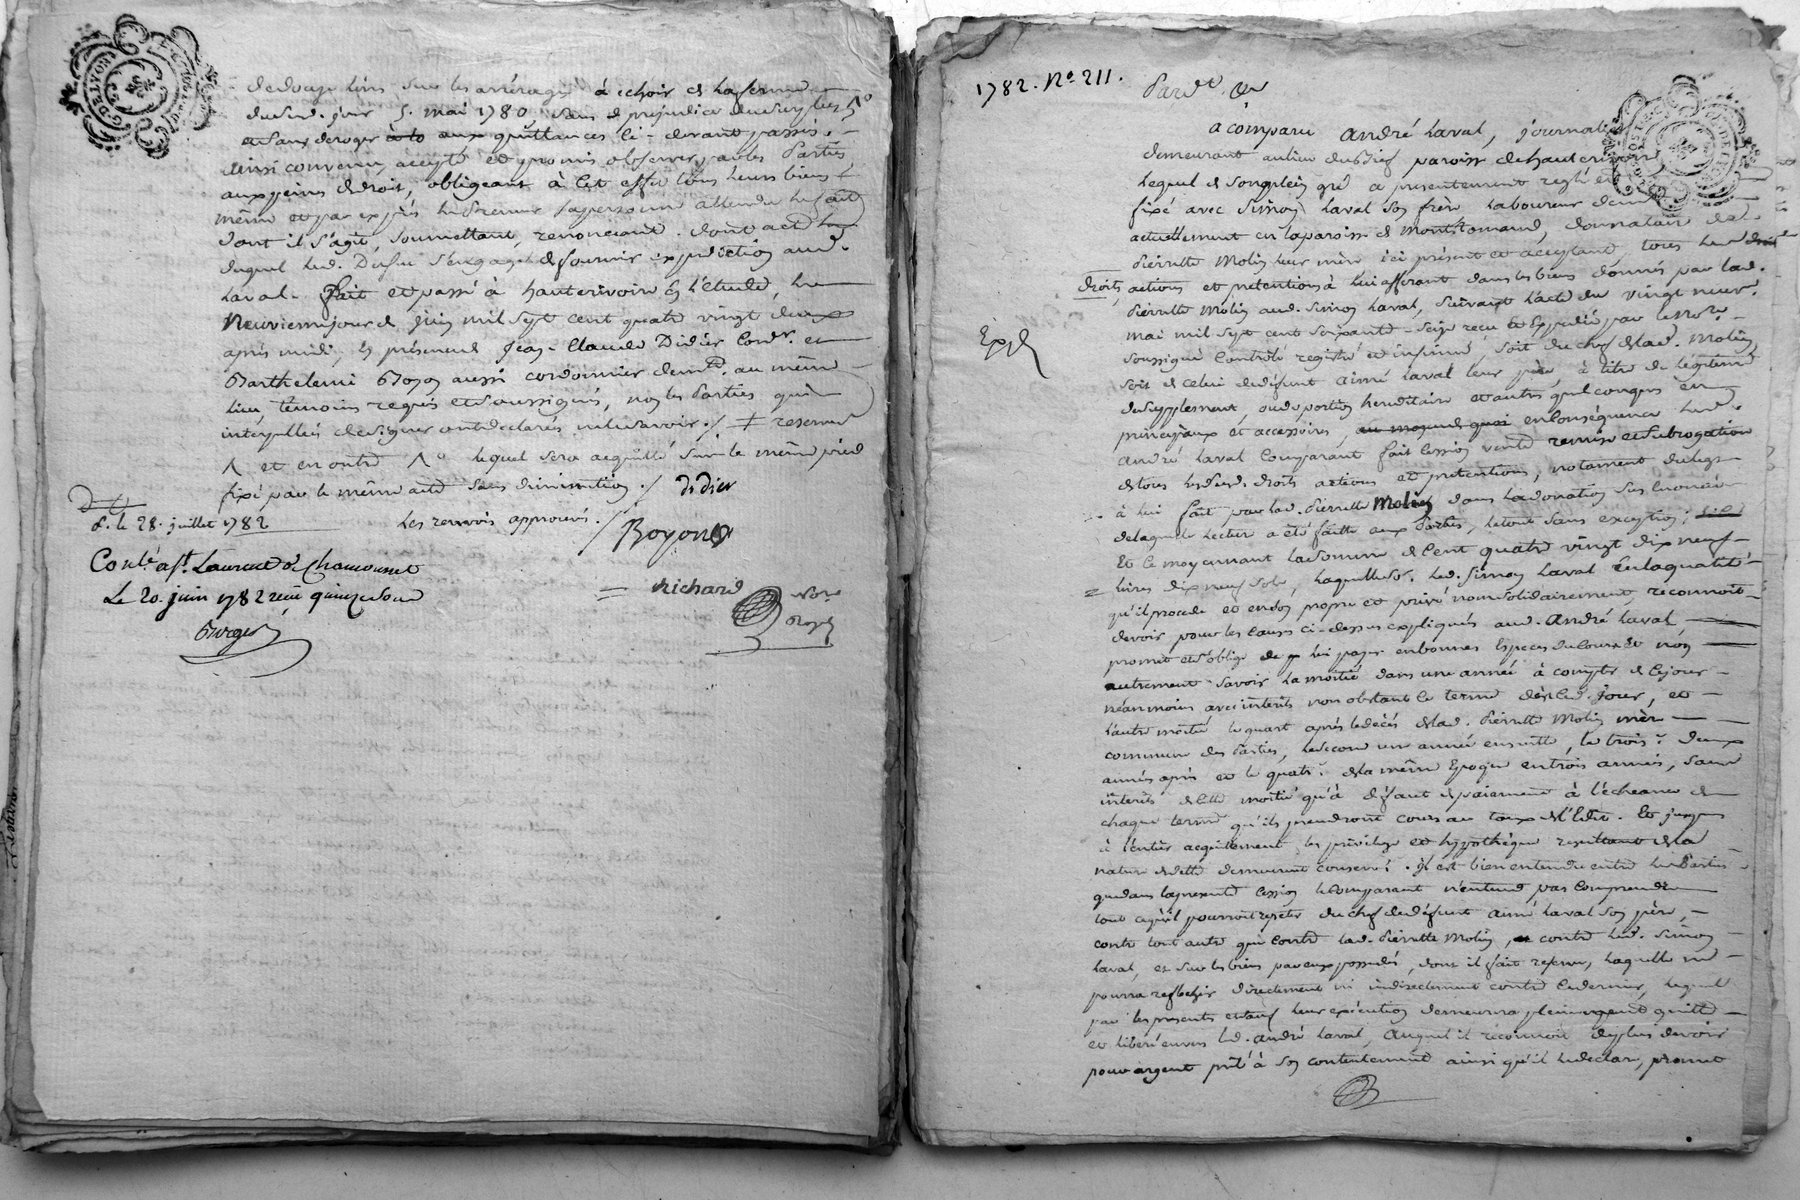 à échoir de la ferme
dud. jour 5. mai 1780, sans de préjudice
et sans déroger à la aux quittances ci-devant passés.
ainsi convenu, accepté et promis observer par les Parties
aux peines de droit, obligeant à cet effet tous leurs biens
même et par exprès le premier sa personne attendu le fait
dont il s'agit, soumettant, renonçant. dont acte
duquel led. s'engage de fournir expédition aud.
Laval. fait et passé à hauterivoire en l'étude, le
neuvieme jour de juin mil sept cent quatre vingt deux
après midi, en présence de Jean-Claude Didier Cordr. et
Barthelemi Boyon aussi cordonnier demt. au même
lieu, témoins requis et soussignés, non les Parties qui
interpellées de signer ont déclaré ne le savoir ./ reserve
et en outre lequel sera acquitté sur le même pied
fixé par le même acte sans diminution ./ didier
d. le 28. juillet 1782
les renvois approuvés.
Boyon
Contr. à St. Laurent de Chamousset
Le 20. juin 1782 reçu quinze sous
Richard
Notre
Royal
1782. No. 211.
Pardt. &a
a comparu André Laval, journalier
demeurant au lieu du Brief paroisse de hauterivoire
lequel de son plein gré a presentement reglé et
fixé avec Simon Laval son frère laboureur demt.
actuellement en la paroisse de Montromand, donnataire de
Pierrette Molin leur mère ici présent et acceptant, tous les droits
droits, actions et prétentions à lui afferant dans les biens donnés par lad.
Pierrette Molin aud. Simon Laval, suivant l'acte du vingt neuf
mai mil sept cent soixante-seize reçu et expédié par le Nore.
Expd.
soussigné Controlé registré et insinué, soit du chef de lad. Molin,
soit de celui de défunt aimé Laval leur père, à titre de légitime
de supplément, ou de portion hereditaire et autres quelconques en
principaux et accessoires, au moyen de quoi en conséquence led.
André Laval Comparant fait cession vente remise et subrogation
de tous lesdits. droits actions et prétentions, notament du legs
à lui fait par lad. Pierrette Molin dans la donation sus énoncée
de laquelle lecture a été faitte aux Parties, le tout sans exception;
Et ce moyennant la somme de Cent quatre vingt dix neuf
livres dix neuf sols, laquelle so. led. Simon Laval en la qualité
qu'il procede et en son propre et privé nom solidairement, reconnoit
devoir pour les causes ci-dessus expliqués aud. André Laval
promet et s'oblige de lui payer en bonnes Espèces du Cours et non
autrement savoir la moitié dans une année à compter de ce jour
néanmoins avec intérêts non obstant le terme dès led. jour, et
l'autre moitié le quart après le décès de lad. Pierrette Molin mère
commune des Parties, le second une année ensuitte, le trois.e deux
années après et le quatr.e de la même Epoque en trois années, sans
intérêts de cette moitié qu'à défaut de paiement à l'échéance de
chaque terme qu'ils prendront cours au taux de l'Edit. Et jusques
à l'entier acquittement les privilege et hypothèque resultant de la
nature de dette demeurent conservés. il est bien entendu entre les Parties
que dans la présente cession le comparant n'entend pas comprendre
tout ce qu'il pourroit repeter du chef de défunt aimé Laval son père,
contre tout autre que contre lad. Pierrette Molin, et contre led. Simon
Laval, et sur les biens par eux possedés, dont il fait reserve, laquelle ne
pourra reflechir directement ni indirectement contre ce dernier, lequel
par les presents et sauf leur exécution demeurera pleinement quitte
et libéré envers led. André Laval, Auquel il reconnoit de plus devoir
pour argent prêté à son contentement ainsi qu'il le declare, promet